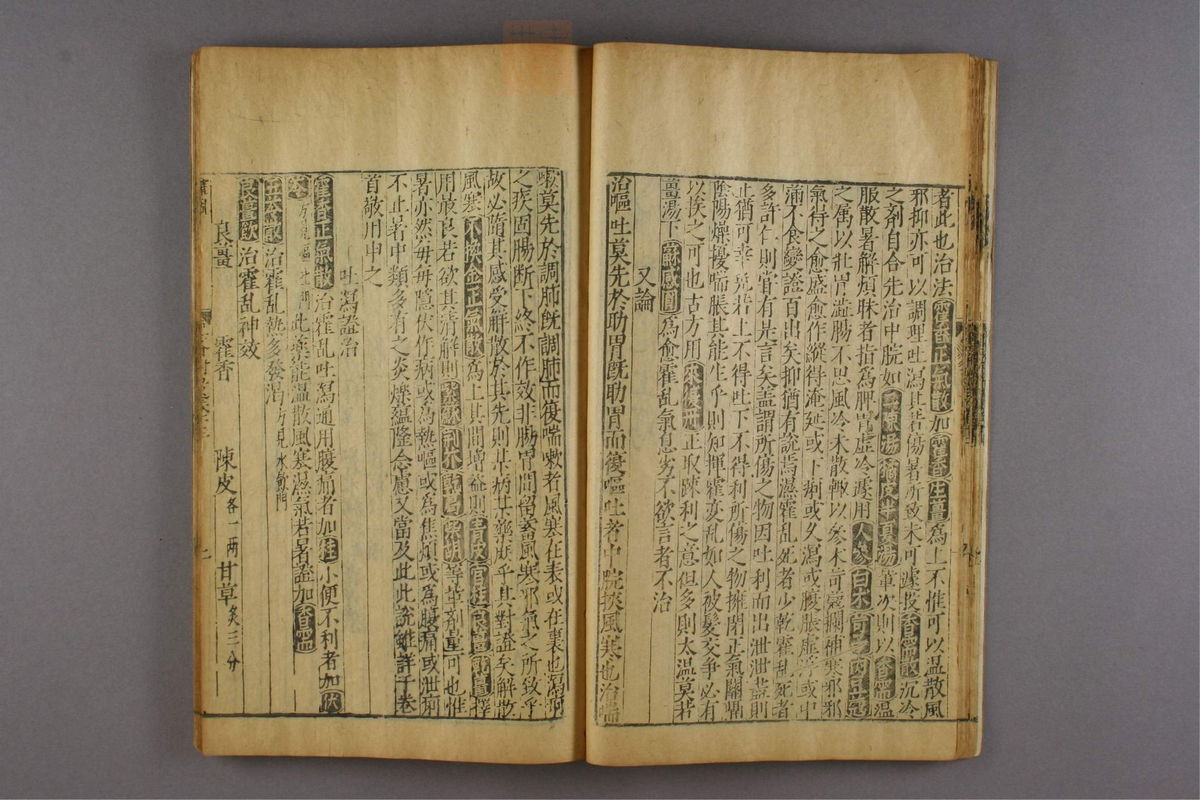 者此也治法藿香正氣散加藿香生薑爲上不惟可以温散風
邪抑亦可以調理吐瀉其若傷暑所致未可遽投香薷散沉冷
之劑自合先治中脘如橘皮半夏湯輩次則以香薷温
服散暑解煩昧者指爲脾胃虚冷遽用人參白朮肉豆蔻
之属以壯胃澁腸不思風冷未散輒以參朮竒蔻攔補寒邪邪
氣得之愈盛愈作縱得淹延或下痢或久瀉或腹脹虚浮或中
滿不食變證百出矣抑猶有説焉濕霍乱死者少乾霍乱死者
多許仁則嘗有是言矣盖謂所傷之物因吐利而出泄泄盡則
止猶可幸免若上不得吐下不得利所傷之物擁閉正氣關鬲
陰陽燥擾喘脹其能生乎則知揮霍变乱如人被髪交争必有
以挨之可也古方用來復丹正取踈利之意但多則太温莫若
薑湯下蘇感圓爲愈霍乱氣息劣不欲言者不治
又論
治嘔吐莫先於助胃既助胃而後嘔吐者中脘挾風寒也治喘
嗽莫先於調肺既調肺而復喘嗽者風寒在表或在裏也瀉痢
之疾固腸斷下終不作效非腸胃間留蓄風寒邪氣之所致乎
故必隨其感受解散於其先則某病某藥庶乎其對證矣解散
風寒不換金正氣散爲上其間增益則青皮官桂良薑乾薑擇
用最良若欲其清解則紫蘇荆芥等輩劑量可也惟
暑亦然毎毎隱伏作病或爲熱嘔或爲焦煩或爲腹痛或泄痢
不止暑中類多有之炎爍蘊隆念慮又當及此此説雖詳于卷
首敢用申之
吐瀉證治
藿香正氣散治霍乱吐瀉通用腹痛者加桂小便不利者加茯
苓方見嘔吐門此藥能温散風寒濕氣若暑證加香薷
五苓散治霍乱熱多發渴方見水氣門
良薑飲治霍乱神效
良薑 藿香 陳皮各一両甘草炙三分